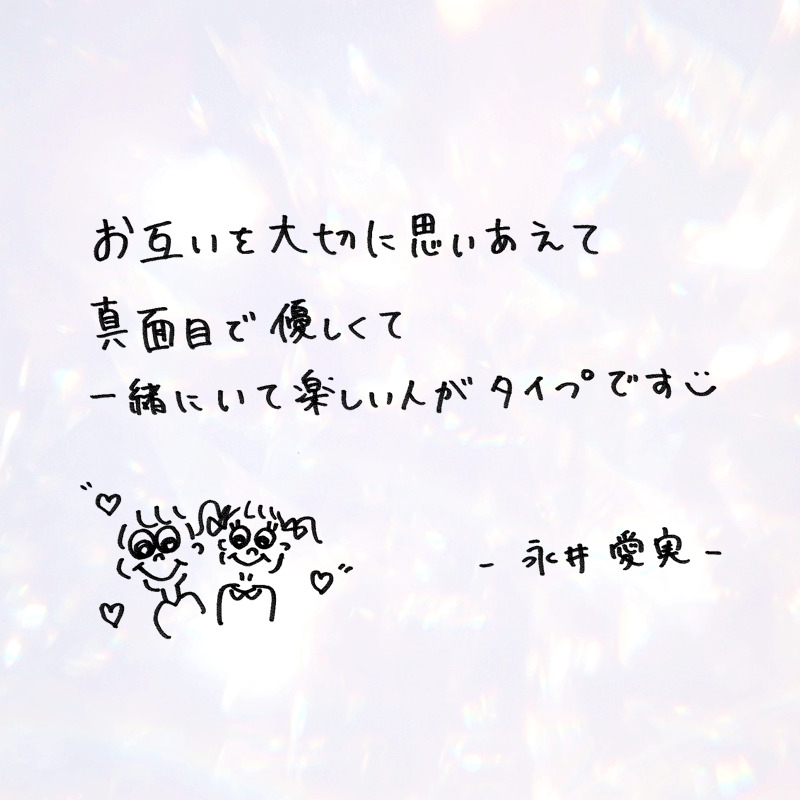 お互いを大切に思いあえて
真面目で優しくて
一緒にいて楽しい人がタイプです
- 永井愛実 -